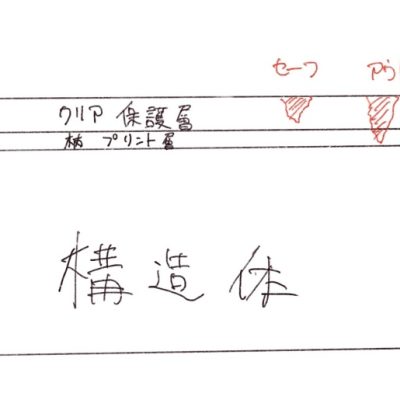 セーフ アウ
クリア 保護層
柄 プリント層
構造体